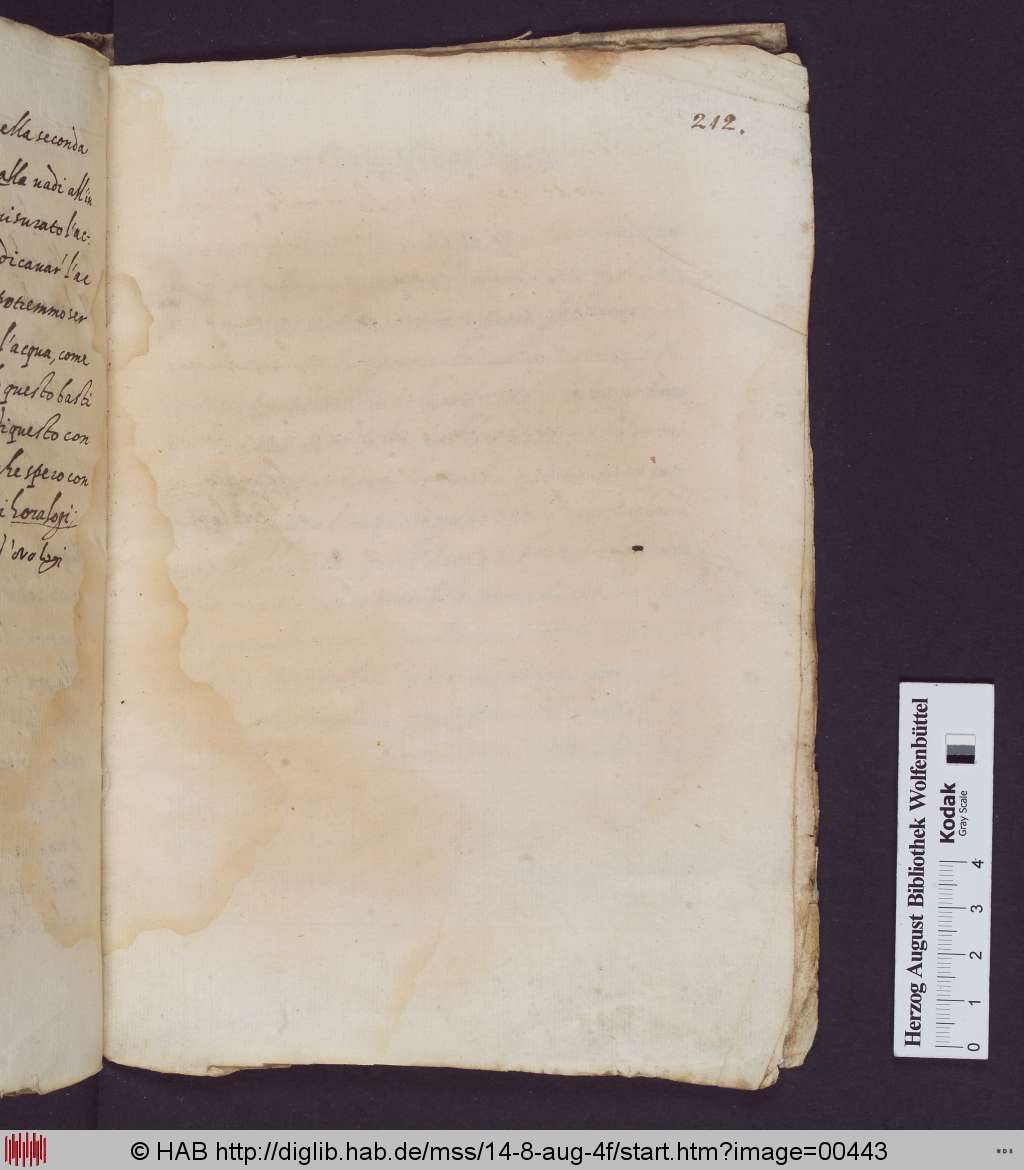 ella seconda
alla uadi all in
isurato l'ac-
dicauar' l'ac
potremmo ser
l'acqua, come
questo basti
di questo con
che spero con
i horalogi;
l'orologi
212.
Herzog August Bibliothek Wolfenbüttel
Kodak
Gray Scale
0 1 2 3 4
© HAB http://diglib.hab.de/mss/14-8-aug-4f/start.htm?image=00443